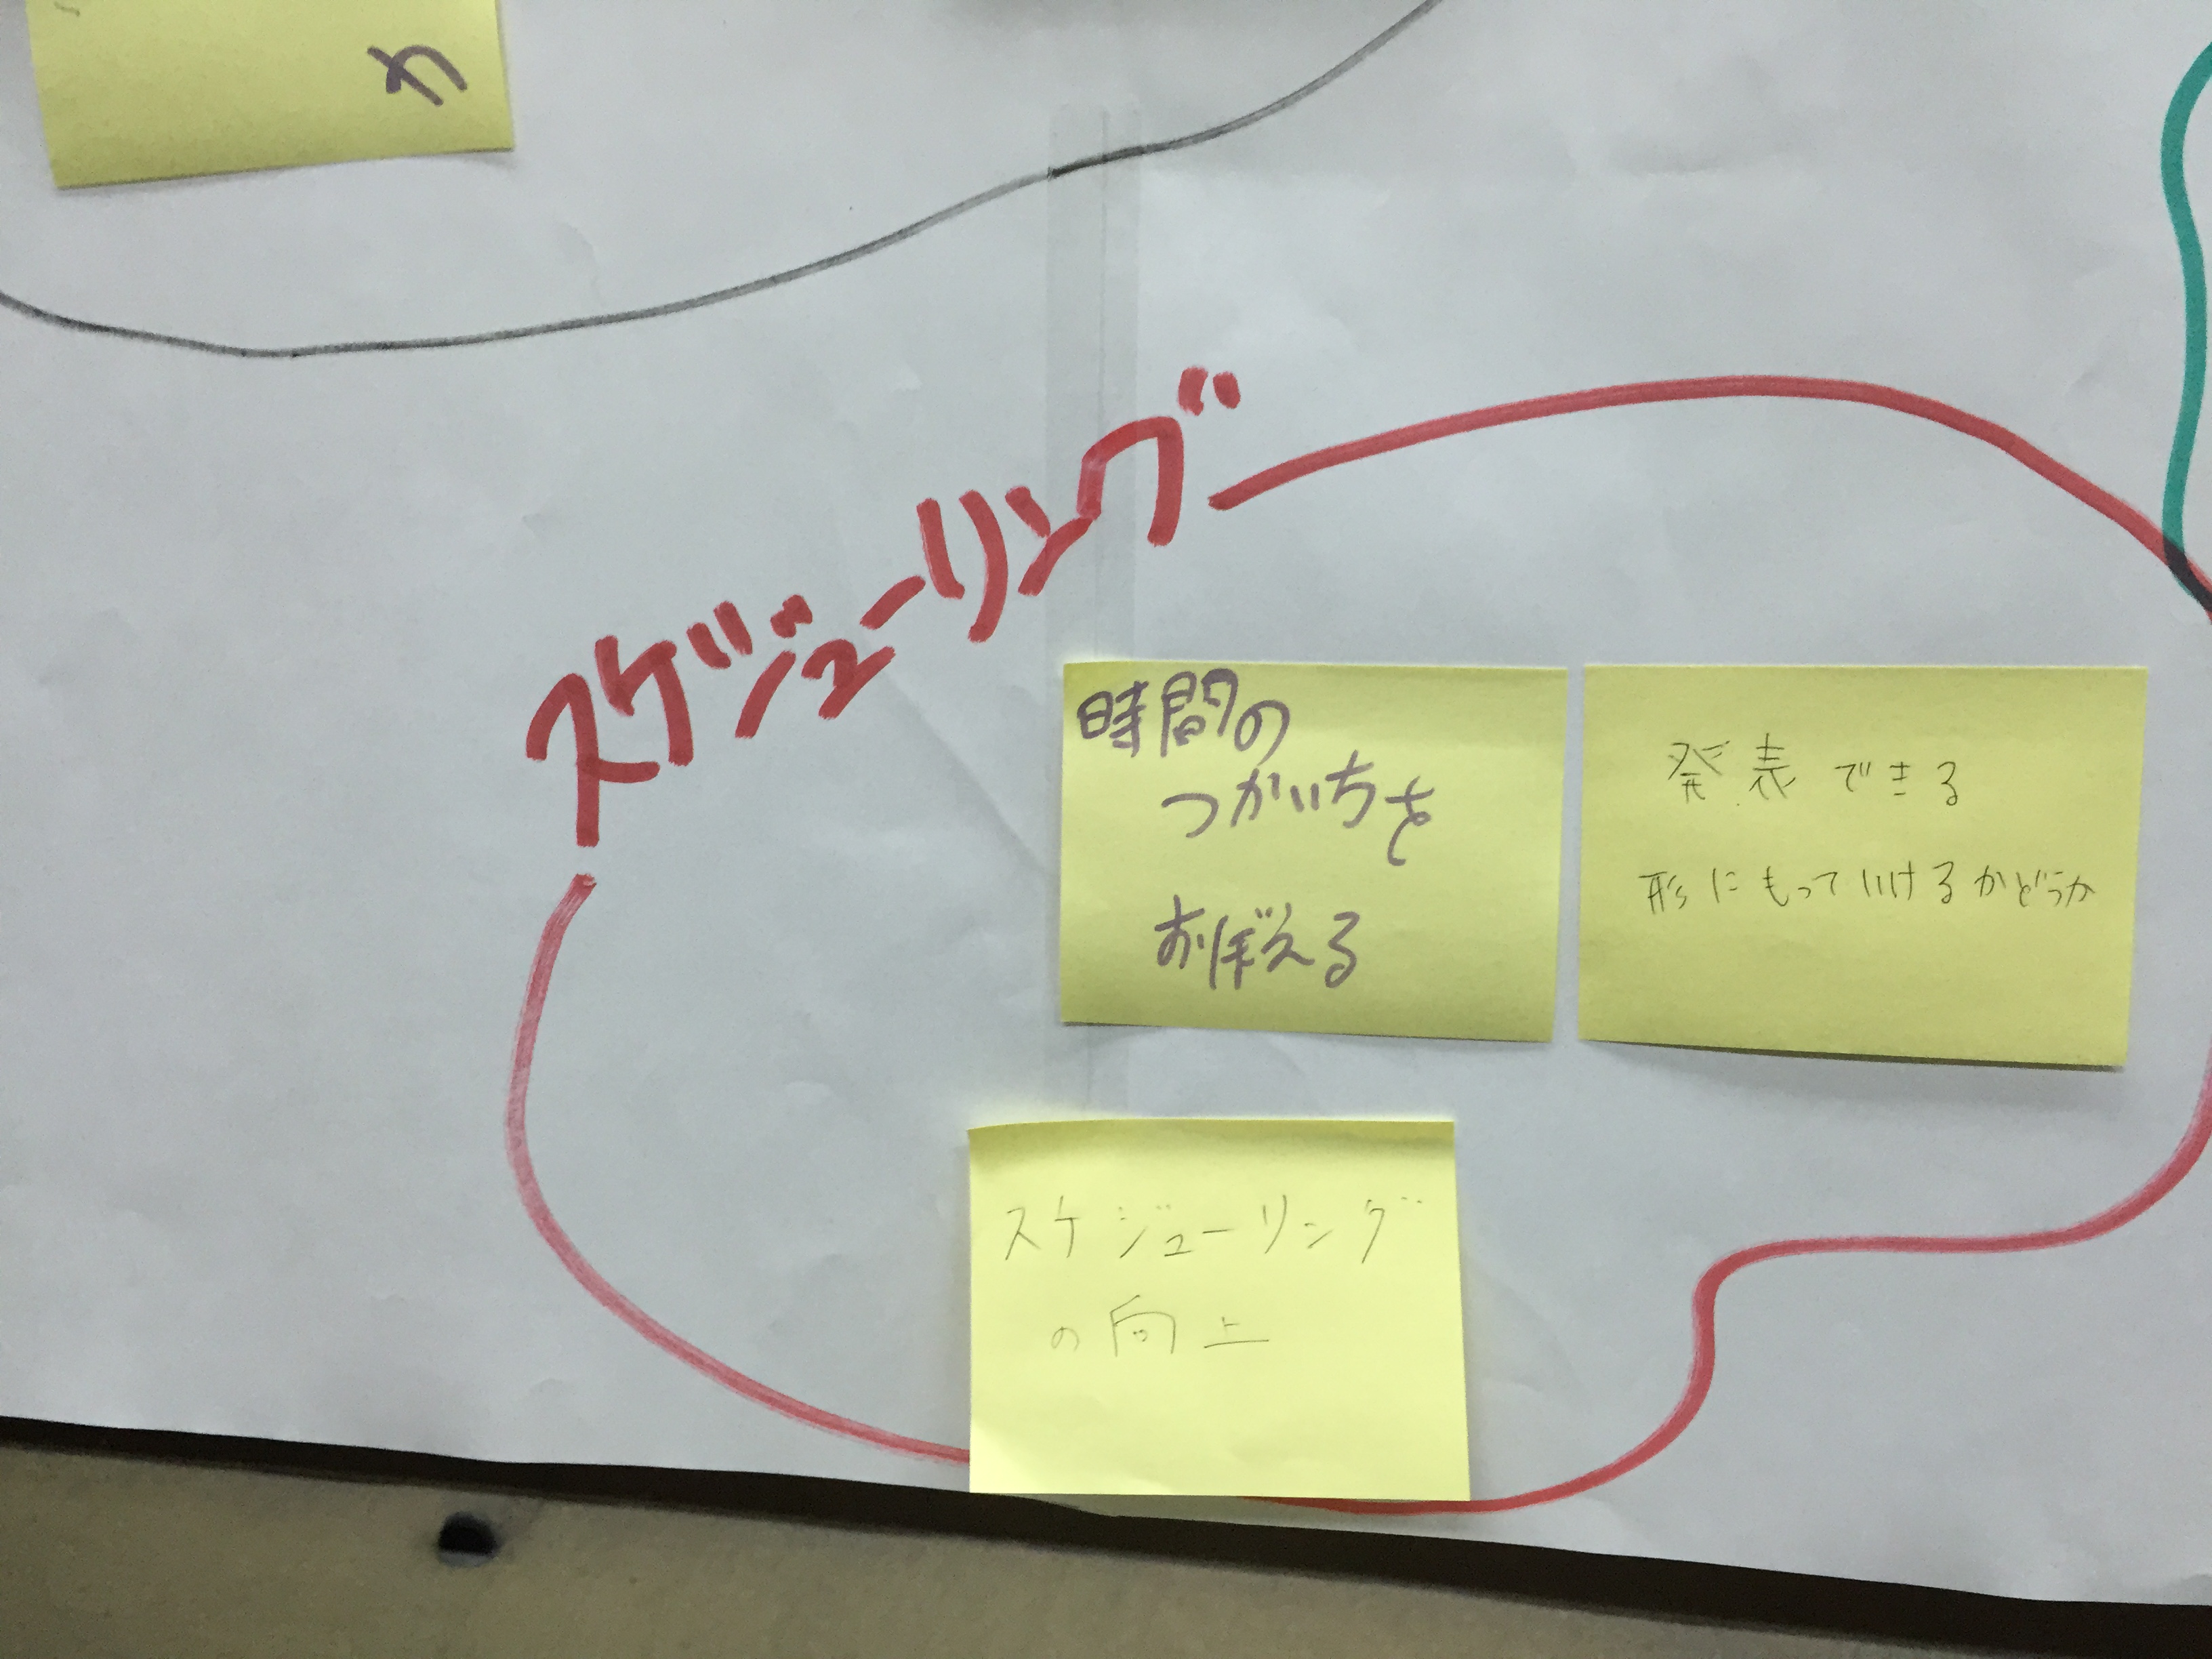 力
スケジューリング
時間の
つかいちを
おぼえる
発表できる
形にもっていけるかどうか
スケジューリング
の向上